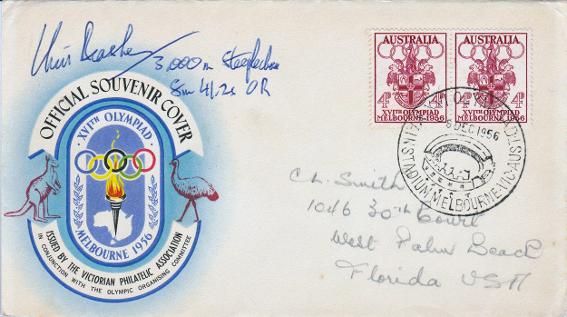 Chris Brasher
3,000m Steeplechase
8m 41.2s OR
OFFICIAL SOUVENIR COVER
XVITH OLYMPIAD
MELBOURNE 1956
ISSUED BY THE VICTORIAN PHILATELIC ASSOCIATION
IN CONJUNCTION WITH THE OLYMPIC ORGANISING COMMITTEE
AUSTRALIA
4D
XVITH OLYMPIAD
MELBOURNE 1956
AUSTRALIA
4D
XVITH OLYMPIAD
MELBOURNE 1956
DEC 1956
MAIN STADIUM MELBOURNE VIC AUST
C.L. Smith
1046 30th Court
West Palm Beach
Florida USA